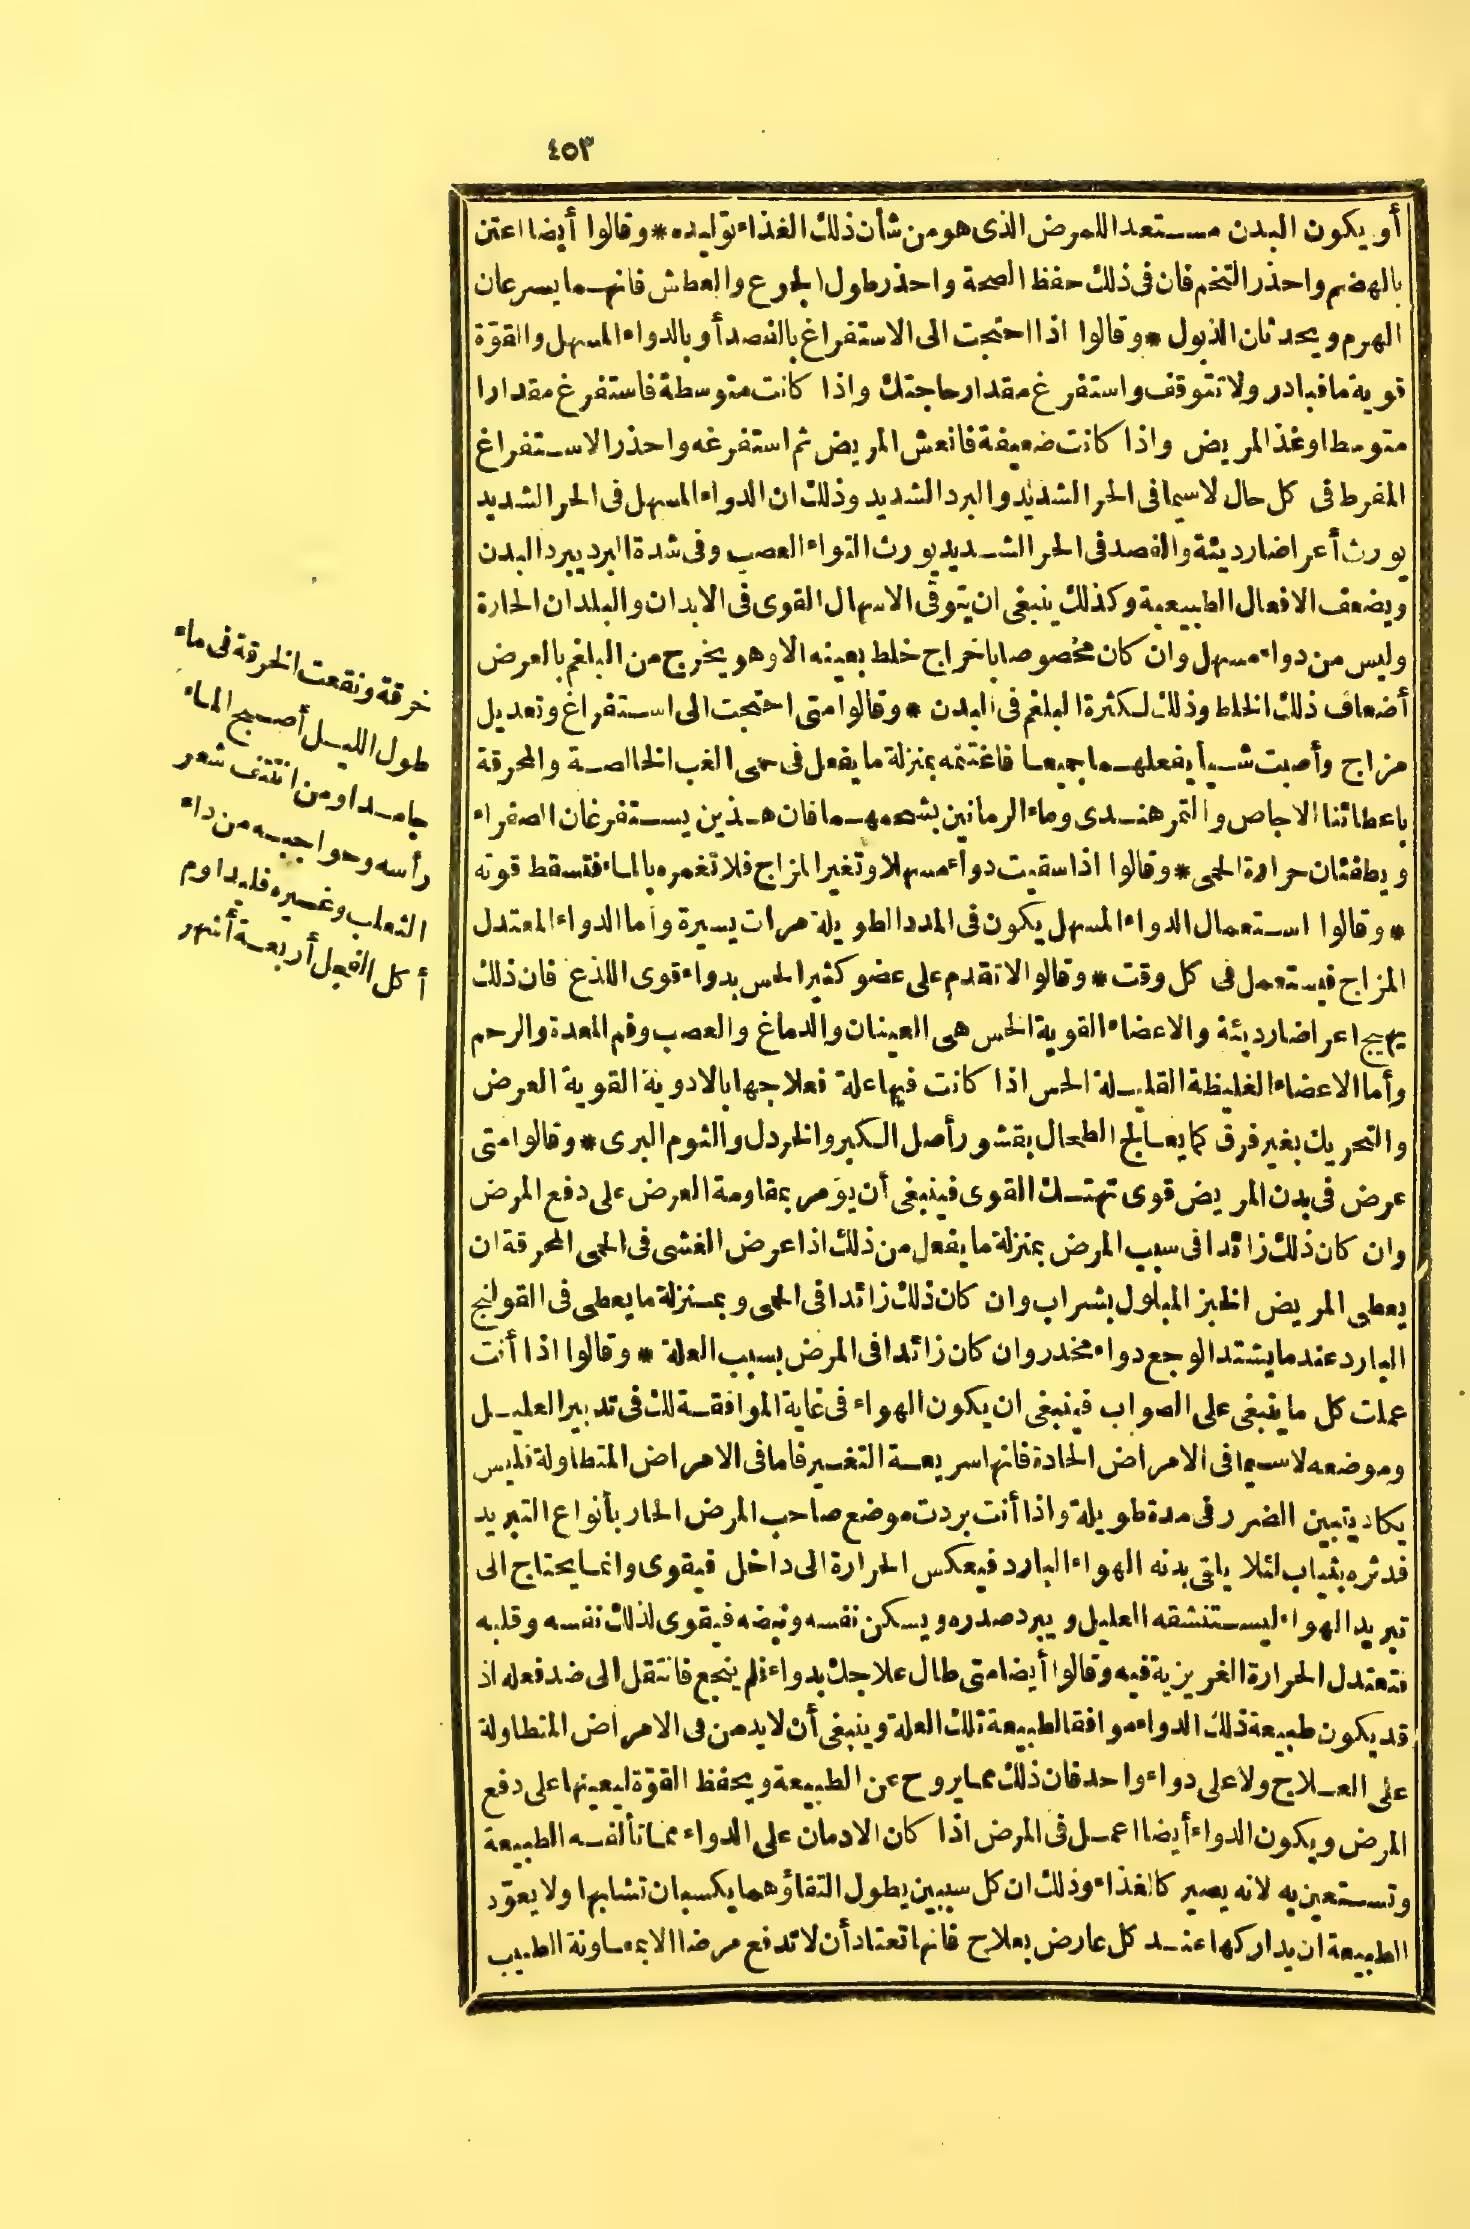 ٤٥٣
أو يكون البدن مستعدا للمرض الذى هو من شأن ذلك الغذاء توليده * وقالوا أيضا اعتن
بالهضم واحذر التخم فان فى ذلك حفظ الصحة واحذر طول الجوع والعطش فانهما يسرعان
الهرم ويحدثان الذبول * وقالوا اذا احتجت الى الاستفراغ بالفصد أو بالدواء المسهل والقوّة
قوية ما فبادر ولا تتوقف واستفرغ مقدار حاجتك واذا كانت متوسطة فاستفرغ مقدارا
متوسطا وغذ المريض واذا كانت ضعيفة فانعش المريض ثم استفرغه واحذر الاستفراغ
المفرط فى كل حال لاسيما فى الحر الشديد والبرد الشديد وذلك ان الدواء المسهل فى الحر الشديد
يورث أعراضا رديئة والفصد فى الحر الشديد يورث التواء العصب وفى شدة البرد يبرد البدن
ويضعف الافعال الطبيعية وكذلك ينبغى ان يتوقى الاسهال القوى فى الابدان والبلدان الحارة
وليس من دواء مسهل وان كان مخصوصا باخراج خلط بعينه الا وهو يخرج من البلغم بالعرض
أضعاف ذلك الخلط وذلك لكثرة البلغم فى البدن * وقالوا متى احتجت الى استفراغ وتعديل
مزاج وأصبت شيأ يفعلهما جميعا فاغتنمه بمنزلة ما يفعل فى حمى الغب الخالصة والمحرقة
باعطائنا الاجاص والتمر هندى وماء الرمانين بشحمهما فان هذين يستفرغان الصفراء
ويطفئان حرارة الحمى * وقالوا اذا سقيت دواء مسهلا وتغير المزاج فلا تغمره بالماء فتسقط قوته
* وقالوا استعمال الدواء المسهل يكون فى المدد الطويلة مرات يسيرة وأما الدواء المعتدل
المزاج فيستعمل فى كل وقت * وقالوا لا تقدم على عضو كثير الحس بدواء قوى اللذع فان ذلك
يهيج اعراضا رديئة والاعضاء القوية الحس هى العينان والدماغ والعصب وفم المعدة والرحم
وأما الاعضاء الغليظة القليلة الحس اذا كانت فيها علة فعلاجها بالادوية القوية العرض
والتحريك بغير فرق كما يعالج الطحال بقشور أصل الكبر والخردل والثوم البرى * وقالوا متى
عرض فى بدن المريض قوى تهتك القوى فينبغى أن يؤمر بمقاومة العرض على دفع المرض
وان كان ذلك زائدا فى سبب المرض بمنزلة ما يفعل من ذلك اذا عرض الغشى فى الحمى المحرقة ان
يعطى المريض الخبز المبلول بشراب وان كان ذلك زائدا فى الحمى وبمنزلة ما يعطى فى القولنج
البارد عندما يشتد الوجع دواء مخدر وان كان زائدا فى المرض بسبب العلة * وقالوا اذا أنت
عملت كل ما ينبغى على الصواب فينبغى ان يكون الهواء فى غاية الموافقة لك فى تدبير العليل
وموضعه لاسيما فى الامراض الحادة فانها سريعة التغيير فاما فى الامراض المتطاولة فليس
يكاد يتبين الضرر فى مدة طويلة واذا أنت بردت موضع صاحب المرض الحار بأنواع التبريد
فدثره بثياب لئلا يلقى بدنه الهواء البارد فيعكس الحرارة الى داخل فيقوى وانما يحتاج الى
تبريد الهواء ليستنشقه العليل ويبرد صدره ويسكن نفسه ونبضه فيقوى لذلك نفسه وقلبه
فتعتدل الحرارة الغريزية فيه وقالوا أيضا متى طال علاجك بدواء فلم ينجع فانتقل الى ضد فعله اذ
قد يكون طبيعة ذلك الدواء موافقا لطبيعة تلك العلة وينبغى أن لا يدمن فى الامراض المتطاولة
على العلاج ولا على دواء واحد فان ذلك مما يروح عن الطبيعة ويحفظ القوّة ليعينها على دفع
المرض ويكون الدواء أيضا اعمل فى المرض اذا كان الادمان على الدواء مما تألفه الطبيعة
وتستعين به لانه يصير كالغذاء وذلك ان كل سببين يطول التقاؤهما يكسبان تشابها ولا يعوّد
الطبيعة ان يداركها عند كل عارض بعلاج فانها تعتاد أن لا تدفع مرضا الا بمعاونة الطبيب
خرقة ونقعت الخرقة فى ماء
طول الليل أصبح الماء
جامدا ومن انتتف شعر
رأسه وحواجبه من داء
الثعلب وغيره فليداوم
أكل الفجل أربعة أشهر